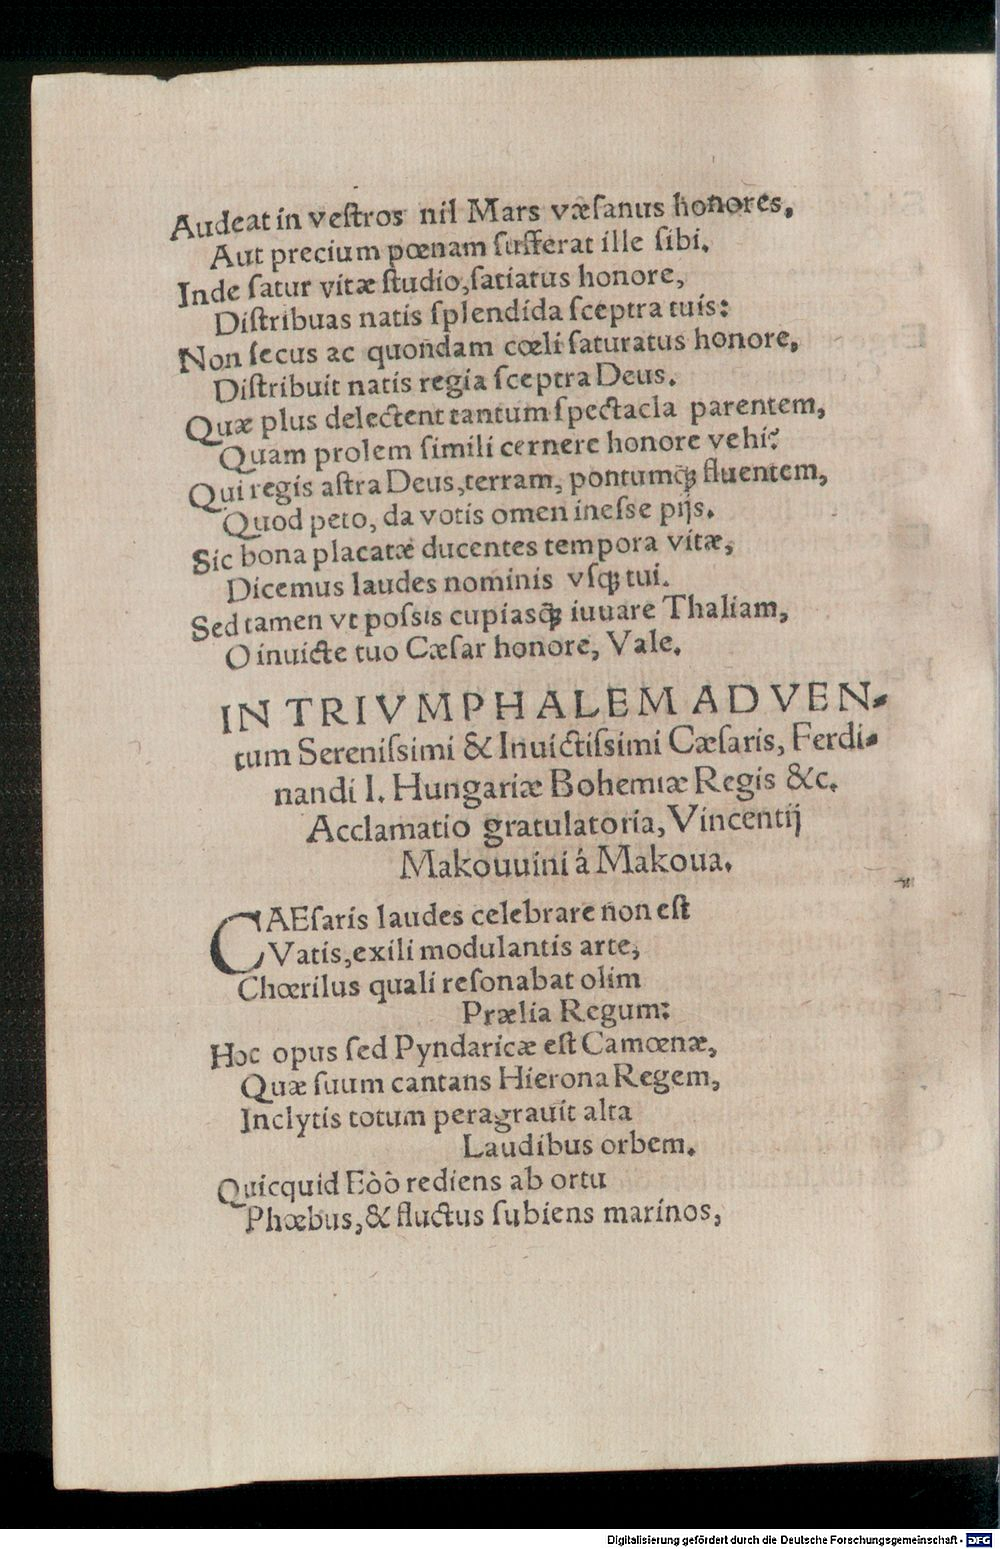 Audeat in veſtros nil Mars væſanus honores,
Aut precium pœnam ſufferat ille ſibi.
Inde ſatur vitæ ſtudio, ſatiatus honore,
Diſtribuas natis ſplendida ſceptra tuis:
Non ſecus ac quondam cœli ſaturatus honore,
Diſtribuit natis regia ſceptra Deus.
Quæ plus delectent tantum ſpectacla parentem,
Quam prolem ſimili cernere honore vehi?
Qui regis aſtra Deus, terram, pontumq́ꝫ fluentem,
Quod peto, da votis omen ineſſe pijs.
Sic bona placatæ ducentes tempora vitæ,
Dicemus laudes nominis vſqꝫ tui.
Sed tamen vt poſsis cupiasq́ꝫ iuuare Thaliam,
O inuicte tuo Cæſar honore, Vale.
IN TRIVMPHALEM ADVEN-
tum Sereniſsimi & Inuictiſsimi Cæſaris, Ferdi-
nandi I. Hungariæ Bohemiæ Regis &c.
Acclamatio gratulatoria, Vincentij
Makouuini á Makoua.
CAEſaris laudes celebrare non eſt
Vatis, exili modulantis arte,
Chœrilus quali reſonabat olim
Prælia Regum:
Hoc opus ſed Pyndaricæ eſt Camœnæ,
Quæ ſuum cantans Hierona Regem,
Inclytis totum peragrauit alta
Laudibus orbem.
Quicquid Eòò rediens ab ortu
Phœbus, & fluctus ſubiens marinos,
Digitalisierung gefördert durch die Deutsche Forschungsgemeinschaft - DFG